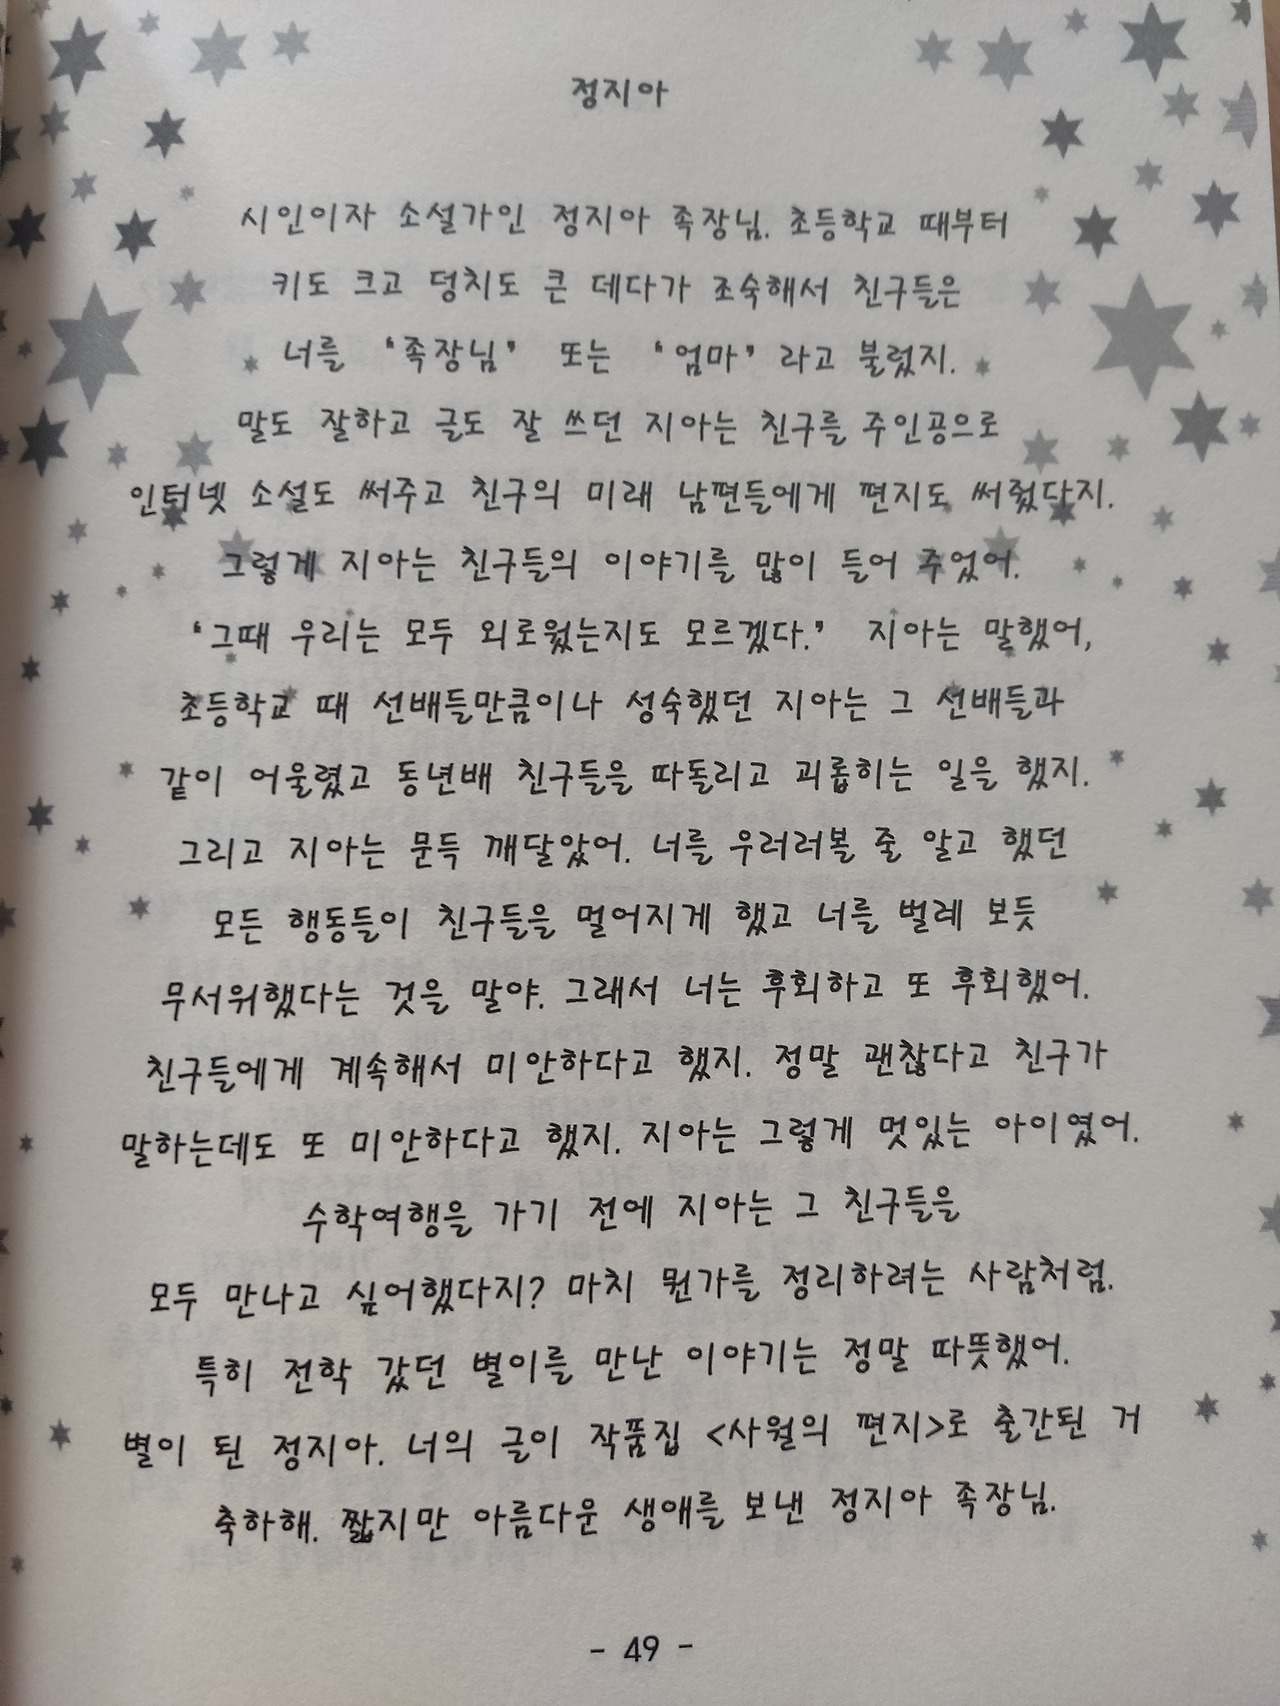 정지아
시인이자 소설가인 정지아 족장님. 초등학교 때부터
키도 크고 덩치도 큰 데다가 조숙해서 친구들은
너를 ‘족장님’ 또는 ‘엄마’라고 불렀지.
말도 잘하고 글도 잘 쓰던 지아는 친구를 주인공으로
인터넷 소설도 써주고 친구의 미래 남편들에게 편지도 써줬단지.
그렇게 지아는 친구들의 이야기를 많이 들어 주었어.
‘그때 우리는 모두 외로웠는지도 모르겠다.’ 지아는 말했어,
초등학교 때 선배들만큼이나 성숙했던 지아는 그 선배들과
같이 어울렸고 동년배 친구들을 따돌리고 괴롭히는 일을 했지.
그리고 지아는 문득 깨달았어. 너를 우러러볼 줄 알고 했던
모든 행동들이 친구들을 멀어지게 했고 너를 벌레 보듯
무서워했다는 것을 말야. 그래서 너는 후회하고 또 후회했어.
친구들에게 계속해서 미안하다고 했지. 정말 괜찮다고 친구가
말하는데도 또 미안하다고 했지. 지아는 그렇게 멋있는 아이였어.
수학여행을 가기 전에 지아는 그 친구들을
모두 만나고 싶어했다지? 마치 뭔가를 정리하려는 사람처럼.
특히 전학 갔던 별이를 만난 이야기는 정말 따뜻했어.
별이 된 정지아. 너의 글이 작품집 <사월의 편지>로 출간된 거
축하해. 짧지만 아름다운 생애를 보낸 정지아 족장님.
- 49 -